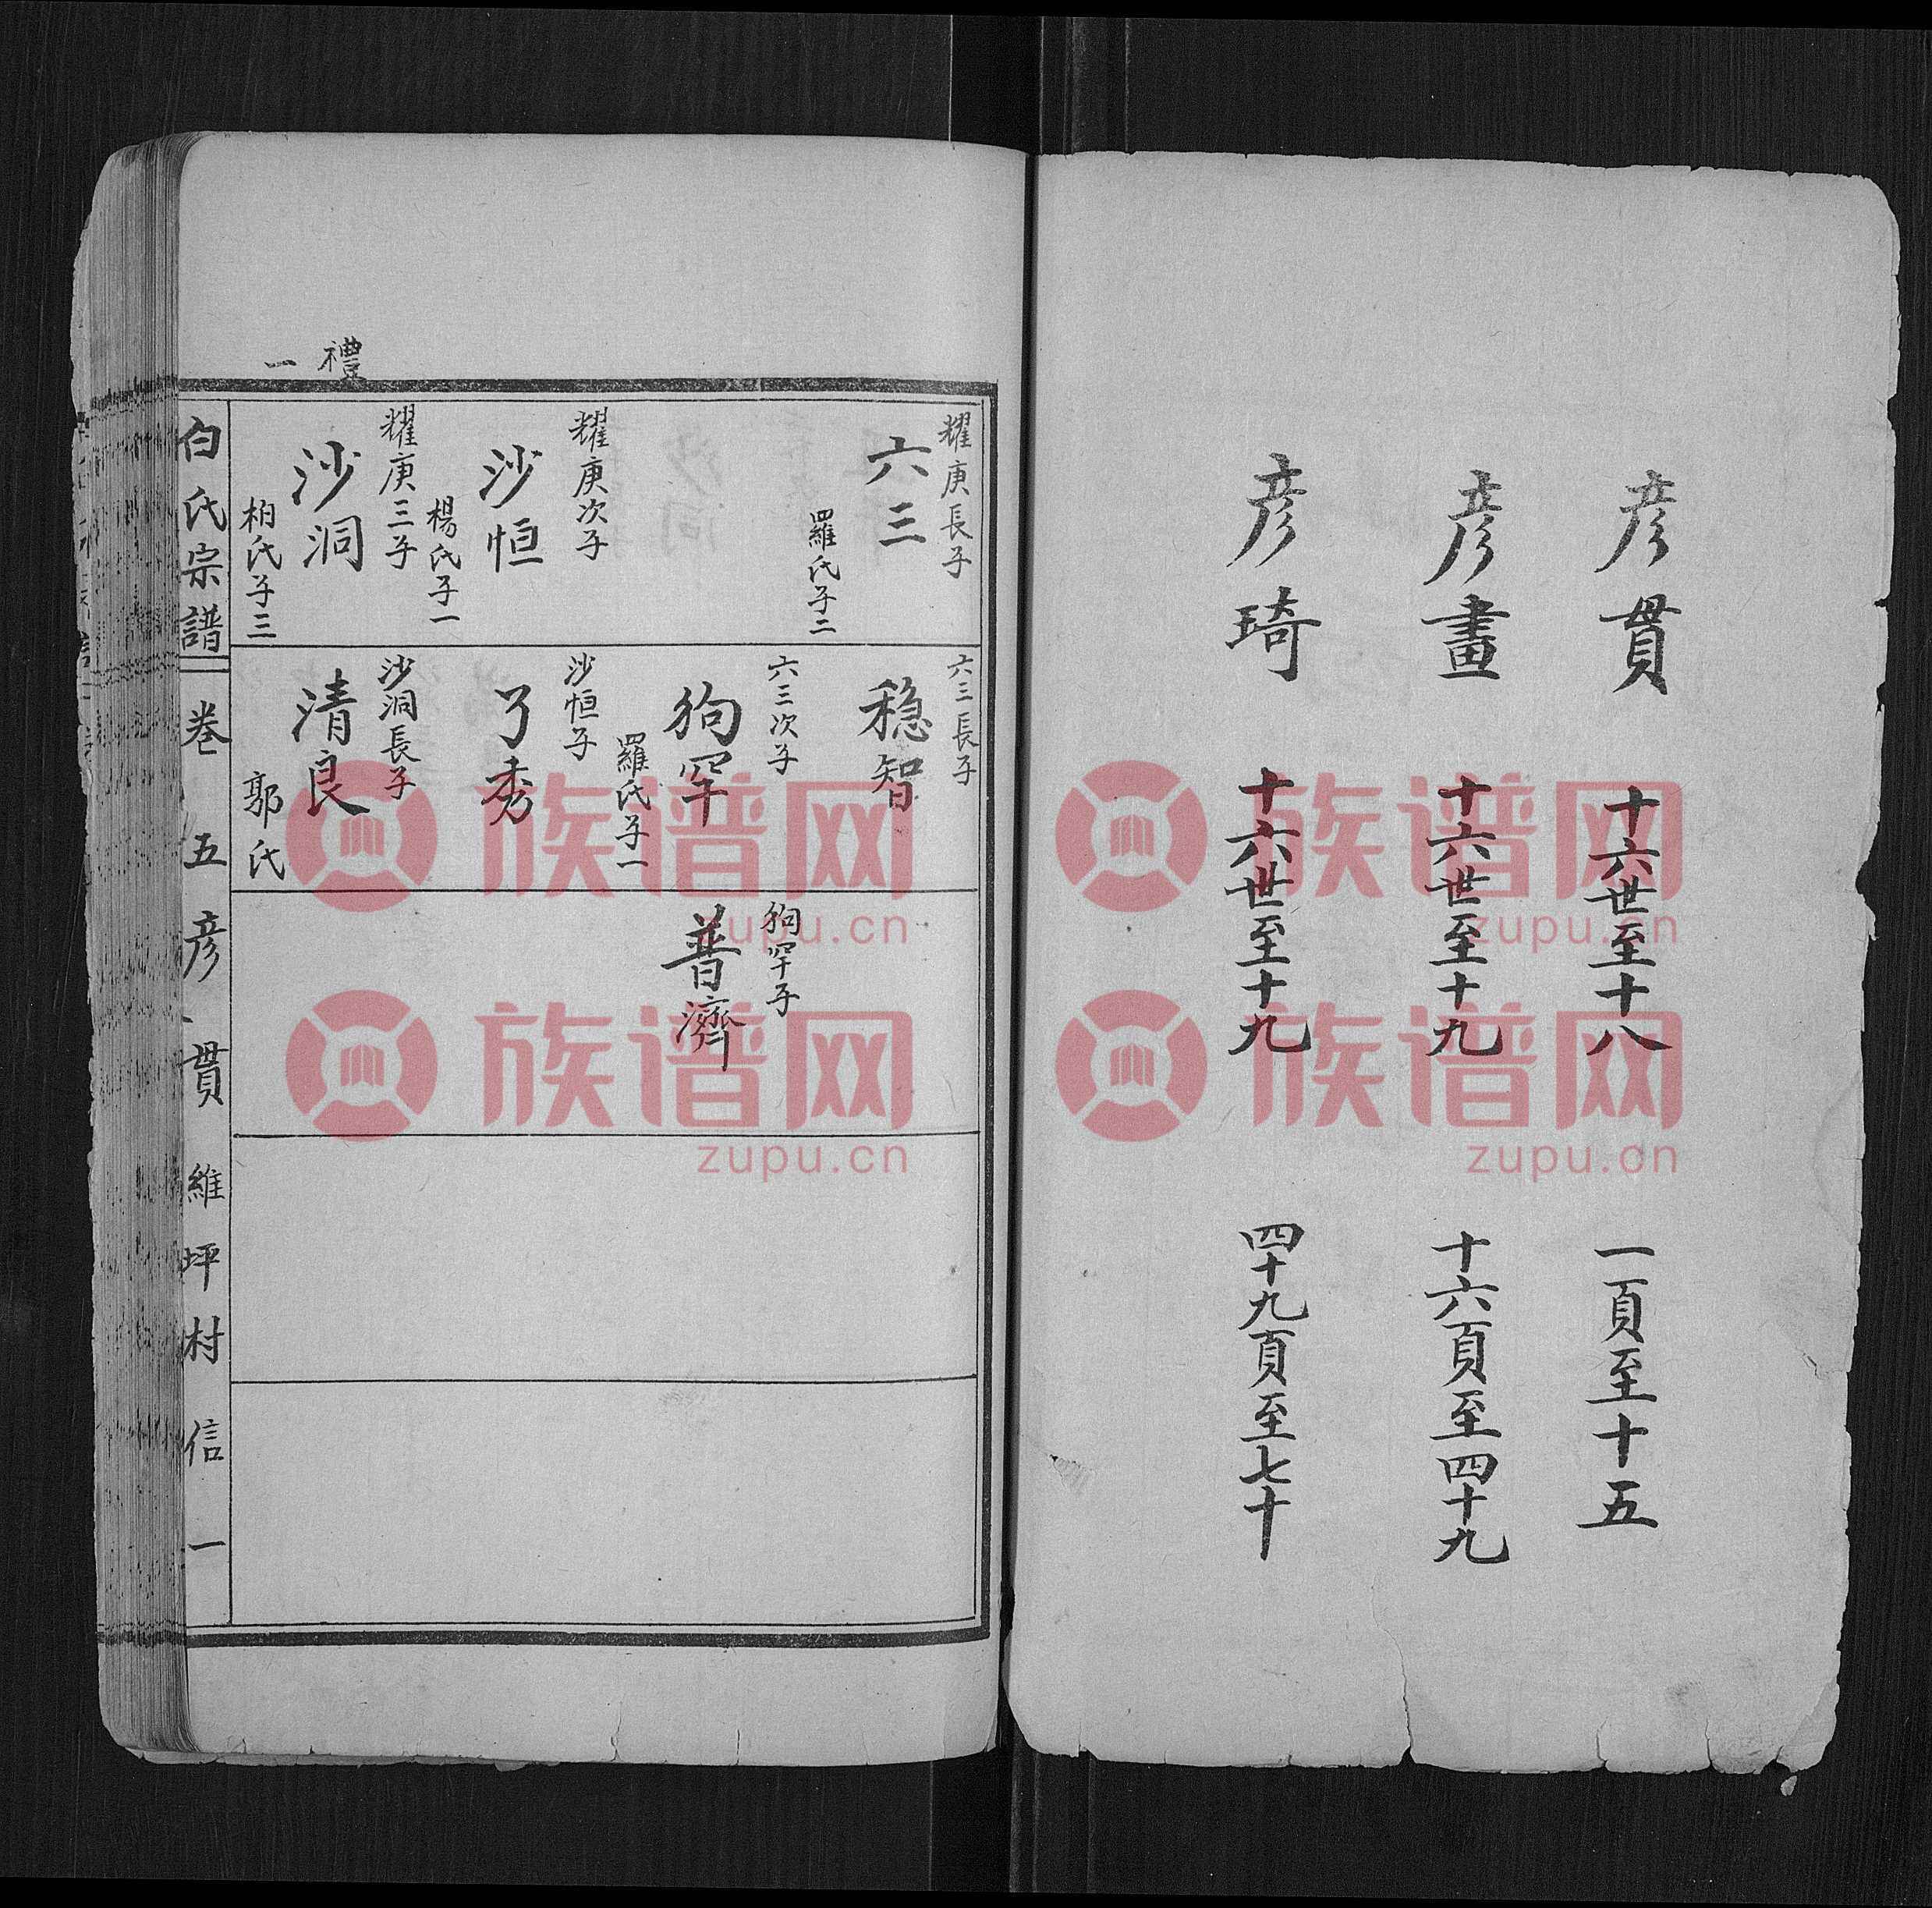 彦貫 十六世至十八 一頁至十五
彦畫 十六世至十九 十六頁至四十九
彦琦 十六世至十九 四十九頁至七十
禮一
耀庚長子
六三
羅氏子二
耀庚次子
沙恒
楊氏子一
耀庚三子
沙洞
柏氏子三
六三長子
穏智
六三次子
狗罕
羅氏子一
沙恒子
了秀
沙洞長子
清良
郭氏
狗罕子
普濟
白氏宗譜 卷五 彦貫 維坪村 信一
族谱网
zupu.cn
族谱网
zupu.cn
族谱网
zupu.cn
族谱网
zupu.cn